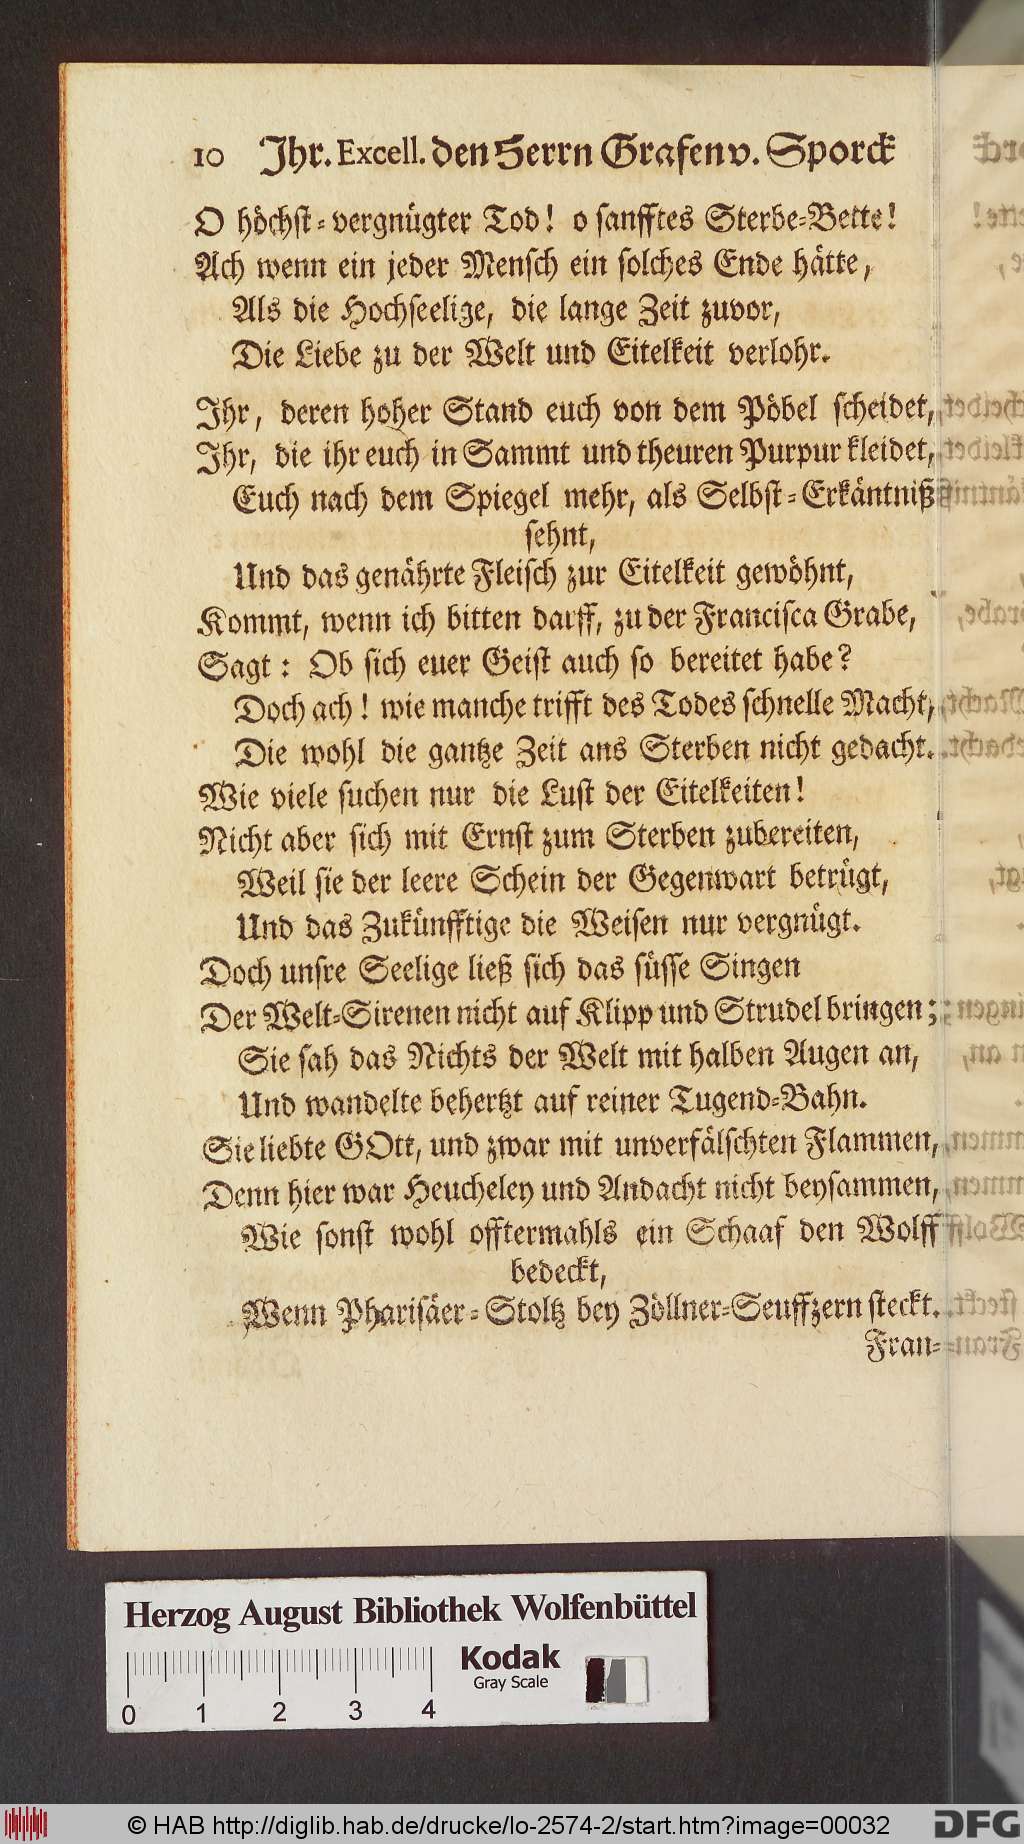 10 Jhr. Excell. den Herrn Grafen v. Sporck
O höchst-vergnügter Tod! o sanfftes Sterbe-Bette!
Ach wenn ein jeder Mensch ein solches Ende hätte,
Als die Hochseelige, die lange Zeit zuvor,
Die Liebe zu der Welt und Eitelkeit verlohr.
Jhr, deren hoher Stand euch von dem Pöbel scheidet,
Jhr, die ihr euch in Sammt und theuren Purpur kleidet,
Euch nach dem Spiegel mehr, als Selbst-Erkäntniß
sehnt,
Und das genährte Fleisch zur Eitelkeit gewöhnt,
Kommt, wenn ich bitten darff, zu der Francisca Grabe,
Sagt: Ob sich euer Geist auch so bereitet habe?
Doch ach! wie manche trifft des Todes schnelle Macht,
Die wohl die gantze Zeit ans Sterben nicht gedacht.
Wie viele suchen nur die Lust der Eitelkeiten!
Nicht aber sich mit Ernst zum Sterben zubereiten,
Weil sie der leere Schein der Gegenwart betrügt,
Und das Zukünfftige die Weisen nur vergnügt.
Doch unsre Seelige ließ sich das süsse Singen
Der Welt-Sirenen nicht auf Klipp und Strudel bringen;
Sie sah das Nichts der Welt mit halben Augen an,
Und wandelte behertzt auf reiner Tugend-Bahn.
Sie liebte GOtt, und zwar mit unverfälschten Flammen,
Denn hier war Heucheley und Andacht nicht beysammen,
Wie sonst wohl offtermahls ein Schaaf den Wolff
bedeckt,
Wenn Pharisäer-Stoltz bey Zöllner-Seuffzern steckt.
Fran-
Herzog August Bibliothek Wolfenbüttel
Kodak
Gray Scale
0 1 2 3 4
© HAB http://diglib.hab.de/drucke/lo-2574-2/start.htm?image=00032
DFG